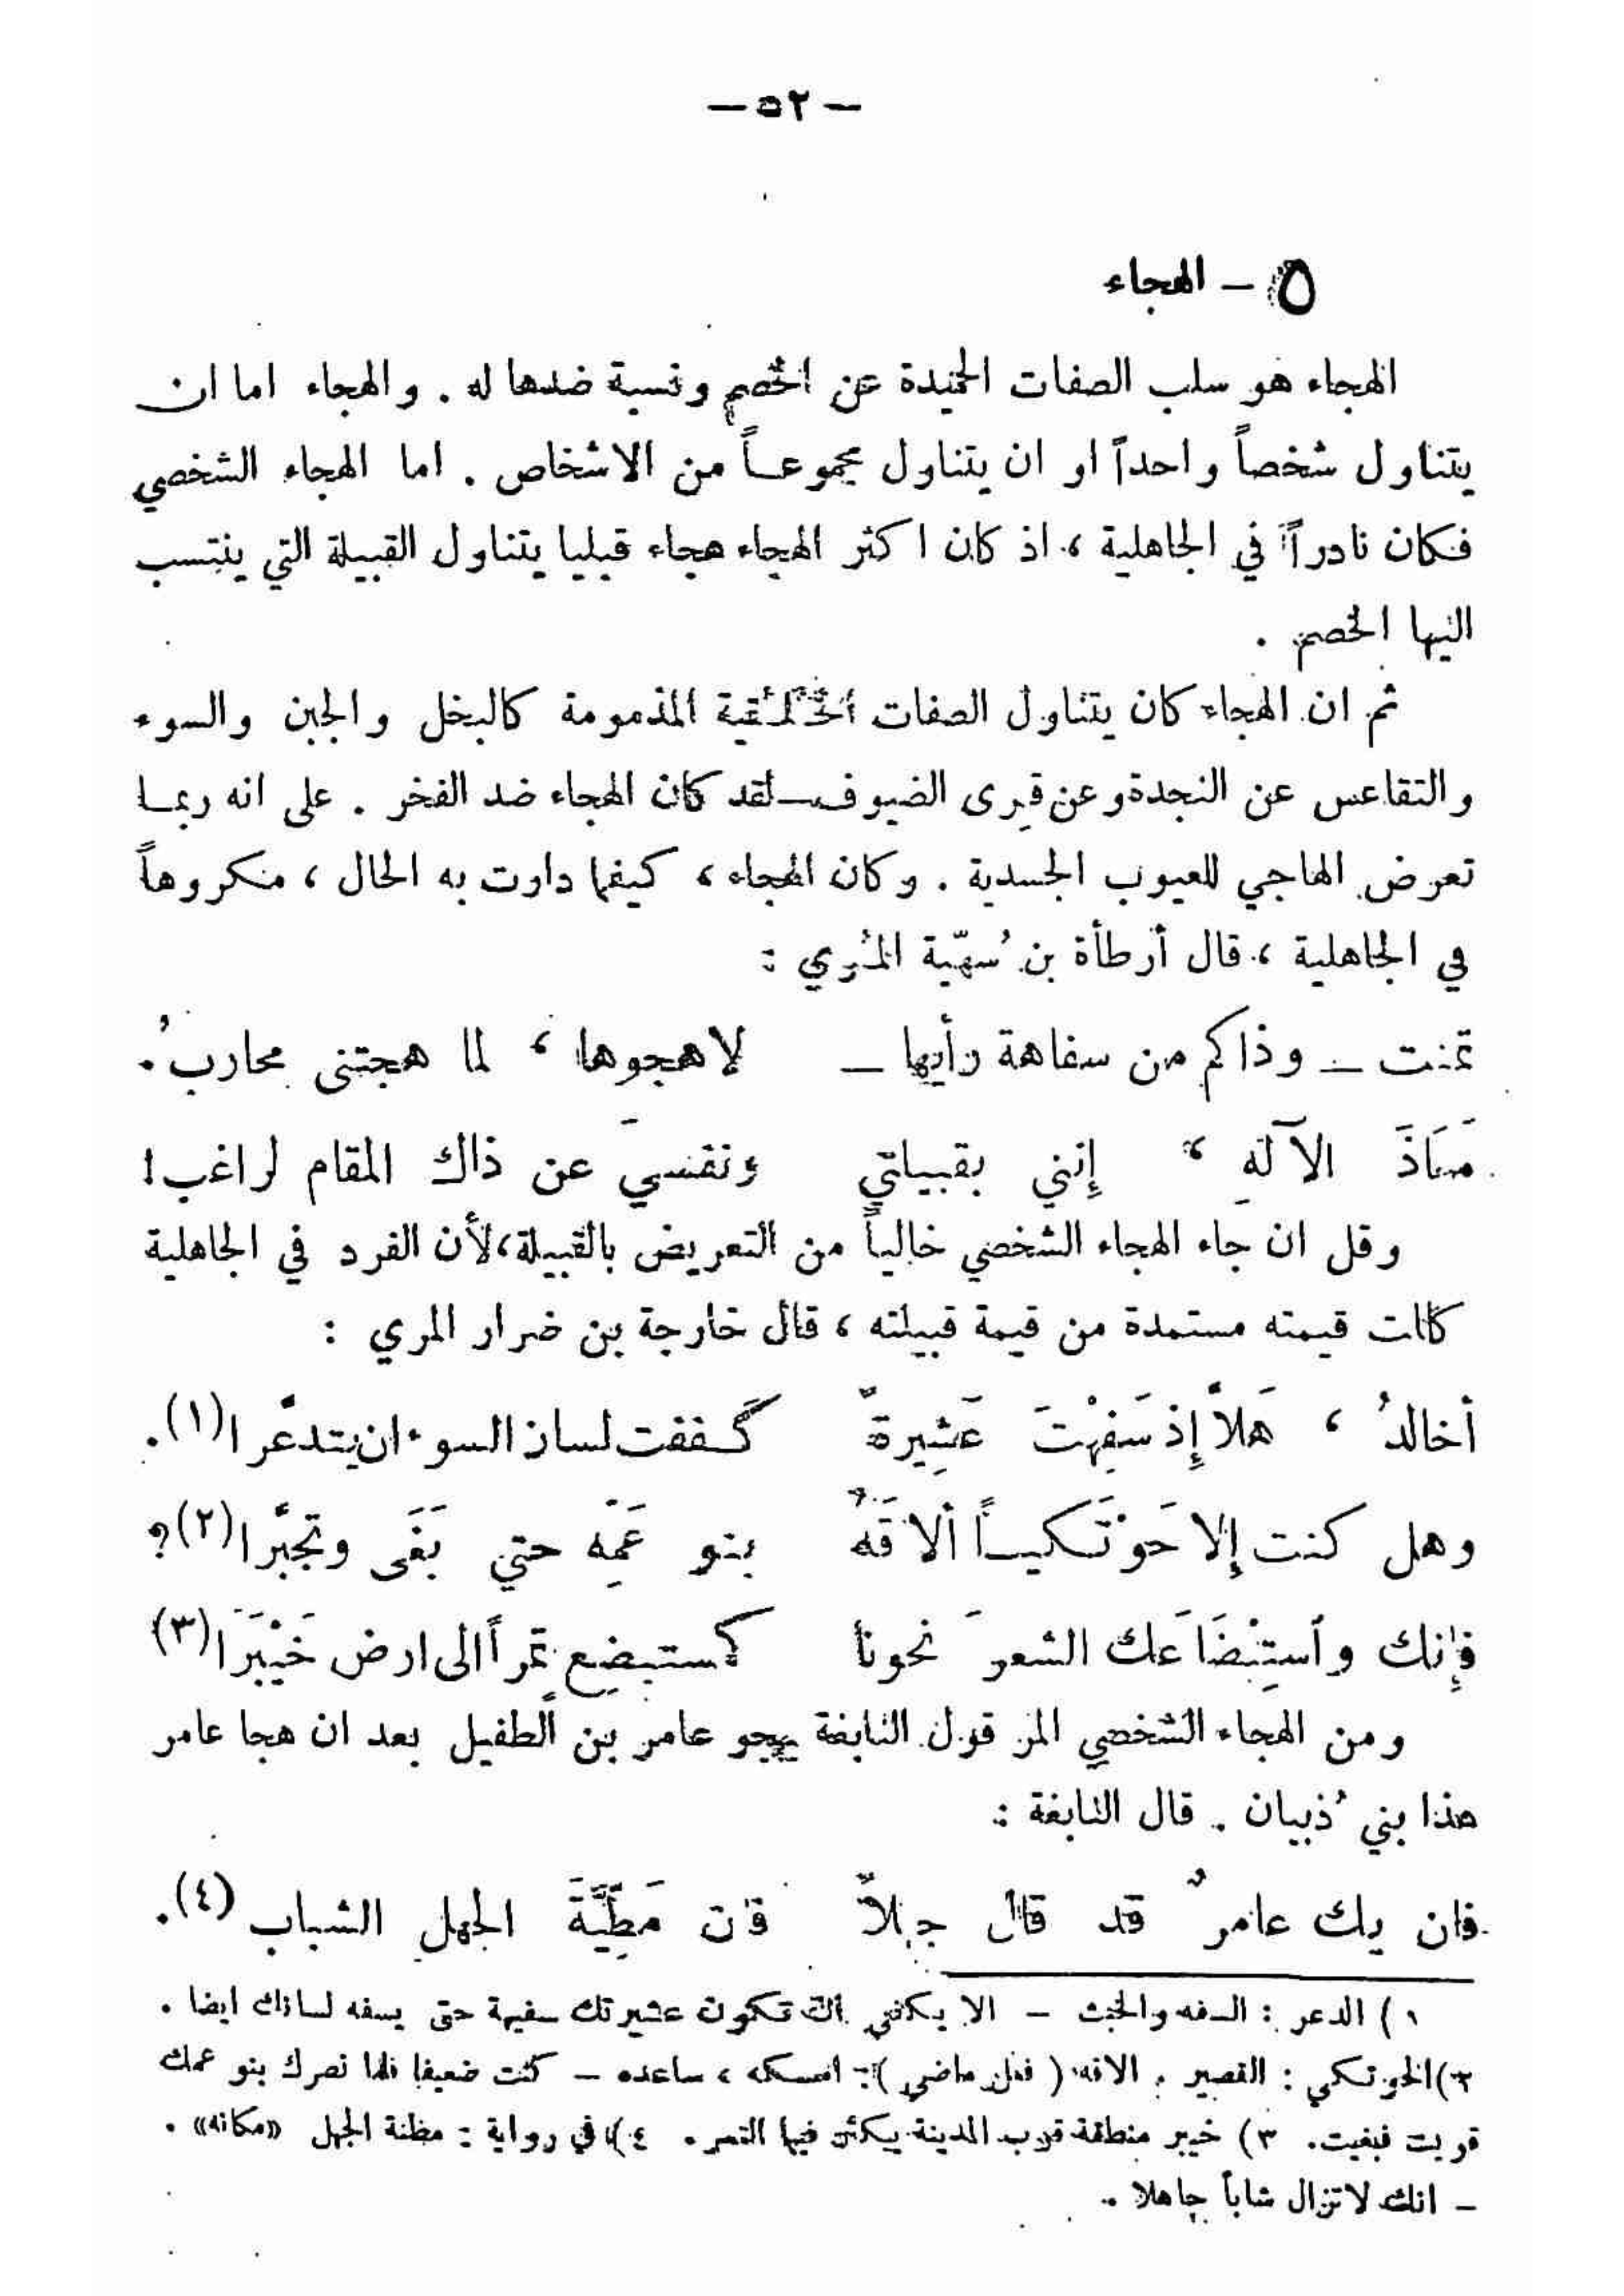 — ٥٢ —
٥ – الهجاء
الهجاء هو سلب الصفات الحميدة عن الخصم ونسبة ضدها له . والهجاء اما ان
يتناول شخصاً واحداً او ان يتناول مجموعـاً من الاشخاص . اما الهجاء الشخصي
فكان نادراً في الجاهلية ، اذ كان اكثر الهجاء هجاء قبليا يتناول القبيلة التي ينتسب
اليها الخصم .
ثم ان الهجاء كان يتناول الصفات الخُلُقية المذمومة كالبخل والجبن والسوء
والتقاعس عن النجدة وعن قِرى الضيوف ــ لقد كان الهجاء ضد الفخر . على انه ربمـا
تعرض الهاجي للعيوب الجسدية . وكان الهجاء ، كيفما دارت به الحال ، مكروهاً
في الجاهلية ، قال أرطأة بن سُهيّة المُري :
تمنت – وذاكم من سفاهة رأيها – لاهجوها ، لما هجتني محاربُ .
مَعَاذَ الآلَهِ ، إِنني بقبيلتي ونفسيَ عن ذاك المقام لراغب !
وقل ان جاء الهجاء الشخصي خالياً من التعريض بالقبيلة، لأن الفرد في الجاهلية
كانت قيمته مستمدة من قيمة قبيلته ، قال خارجة بن ضرار المري :
أخالدُ ، هَلاَّ إِذ سَفِهْتَ عَشِيرةً كَـففت لسان السوء ان يتدعَّرا (١) .
وهل كنت إِلا حَوْتَكيـاً ألاقَهُ بنو عَمِّه حتي بَغَى وتجبَّرا (٢) ؟
فإِنك وأستِبْضَاعَك الشعرَ نحونا كمستبضِع تمراً الى ارض خَيْبَرَا (٣)
ومن الهجاء الشخصي المر قول النابغة يهجو عامر بن الطفيل بعد ان هجا عامر
هذا بني ذُبيان . قال النابغة :
فان يك عامرٌ قد قال جهلاً فان مَطِيَّةَ الجهل الشباب (٤) .
١) الدعر : السفه والخبث – الا يكفي ان تكون عشيرتك سفيهة حتى يسفه لسانك ايضا .
٢) الحوتكي : القصير . الاقه ( فعل ماضي ) : امسكه ، ساعده – كنت ضعيفا فلما نصرك بنو عمك
قويت فبغيت. ٣) خيبر منطقة قرب المدينة يكثر فيها التمر . ٤) في رواية : مظنة الجهل «مكانه» .
– انك لا تزال شاباً جاهلا .